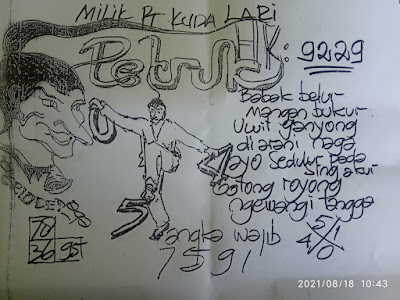 MILIK PT KUDA LARI
Petruk HK: 9229
Babak belur
Mangan bukur
Uwit ganyong
diarani naga
Ayo Sedulur pada
sing akur
Gotong royong
ngewangi tangga
0
5
70
36 95
angka wajib
7591
5 1
4 0
2021/08/18 10:43